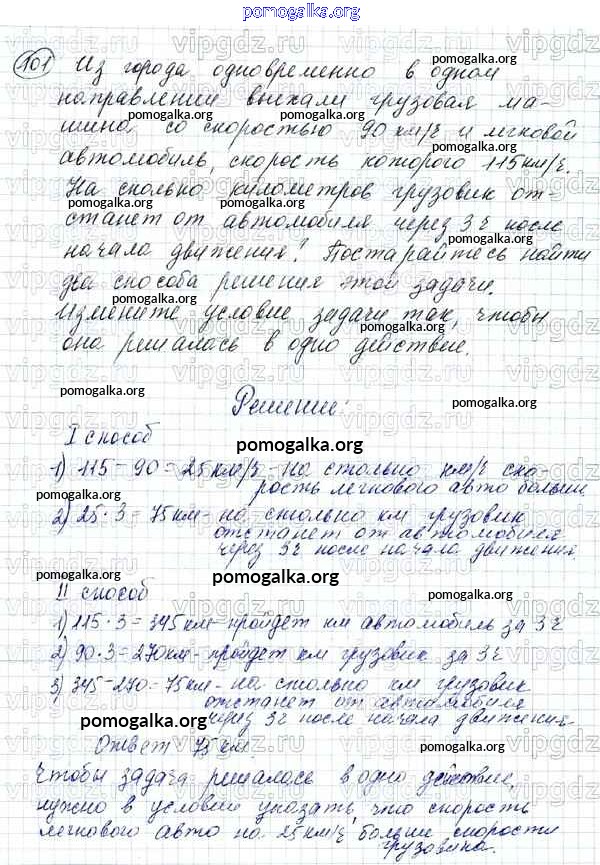 pomogalka.org
101 Из города одновременно в одном
направлении выехали грузовая ма-
шина со скоростью 90 км/ч и легковой
автомобиль, скорость которого 115 км/ч.
На сколько километров грузовик от-
станет от автомобиля через 3 ч после
начала движения? Постарайтесь найти
два способа решения этой задачи.
Измените условие задачи так, чтобы
она решалась в одно действие.
Решение:
I способ
1) 115 - 90 = 25 км/ч - на столько км/ч ско-
рость легкового авто больше.
2) 25 · 3 = 75 км - на столько км грузовик
отстанет от автомобиля
через 3 ч после начала движения.
II способ
1) 115 · 3 = 345 км - пройдет км автомобиль за 3 ч
2) 90 · 3 = 270 км - пройдет км грузовик за 3 ч
3) 345 - 270 = 75 км - на столько км грузовик
отстанет от автомобиля
через 3 ч после начала движения.
Ответ 75 км.
Чтобы задача решалась в одно действие,
нужно в условии указать, что скорость
легкового авто на 25 км/ч больше скорости
грузовика.